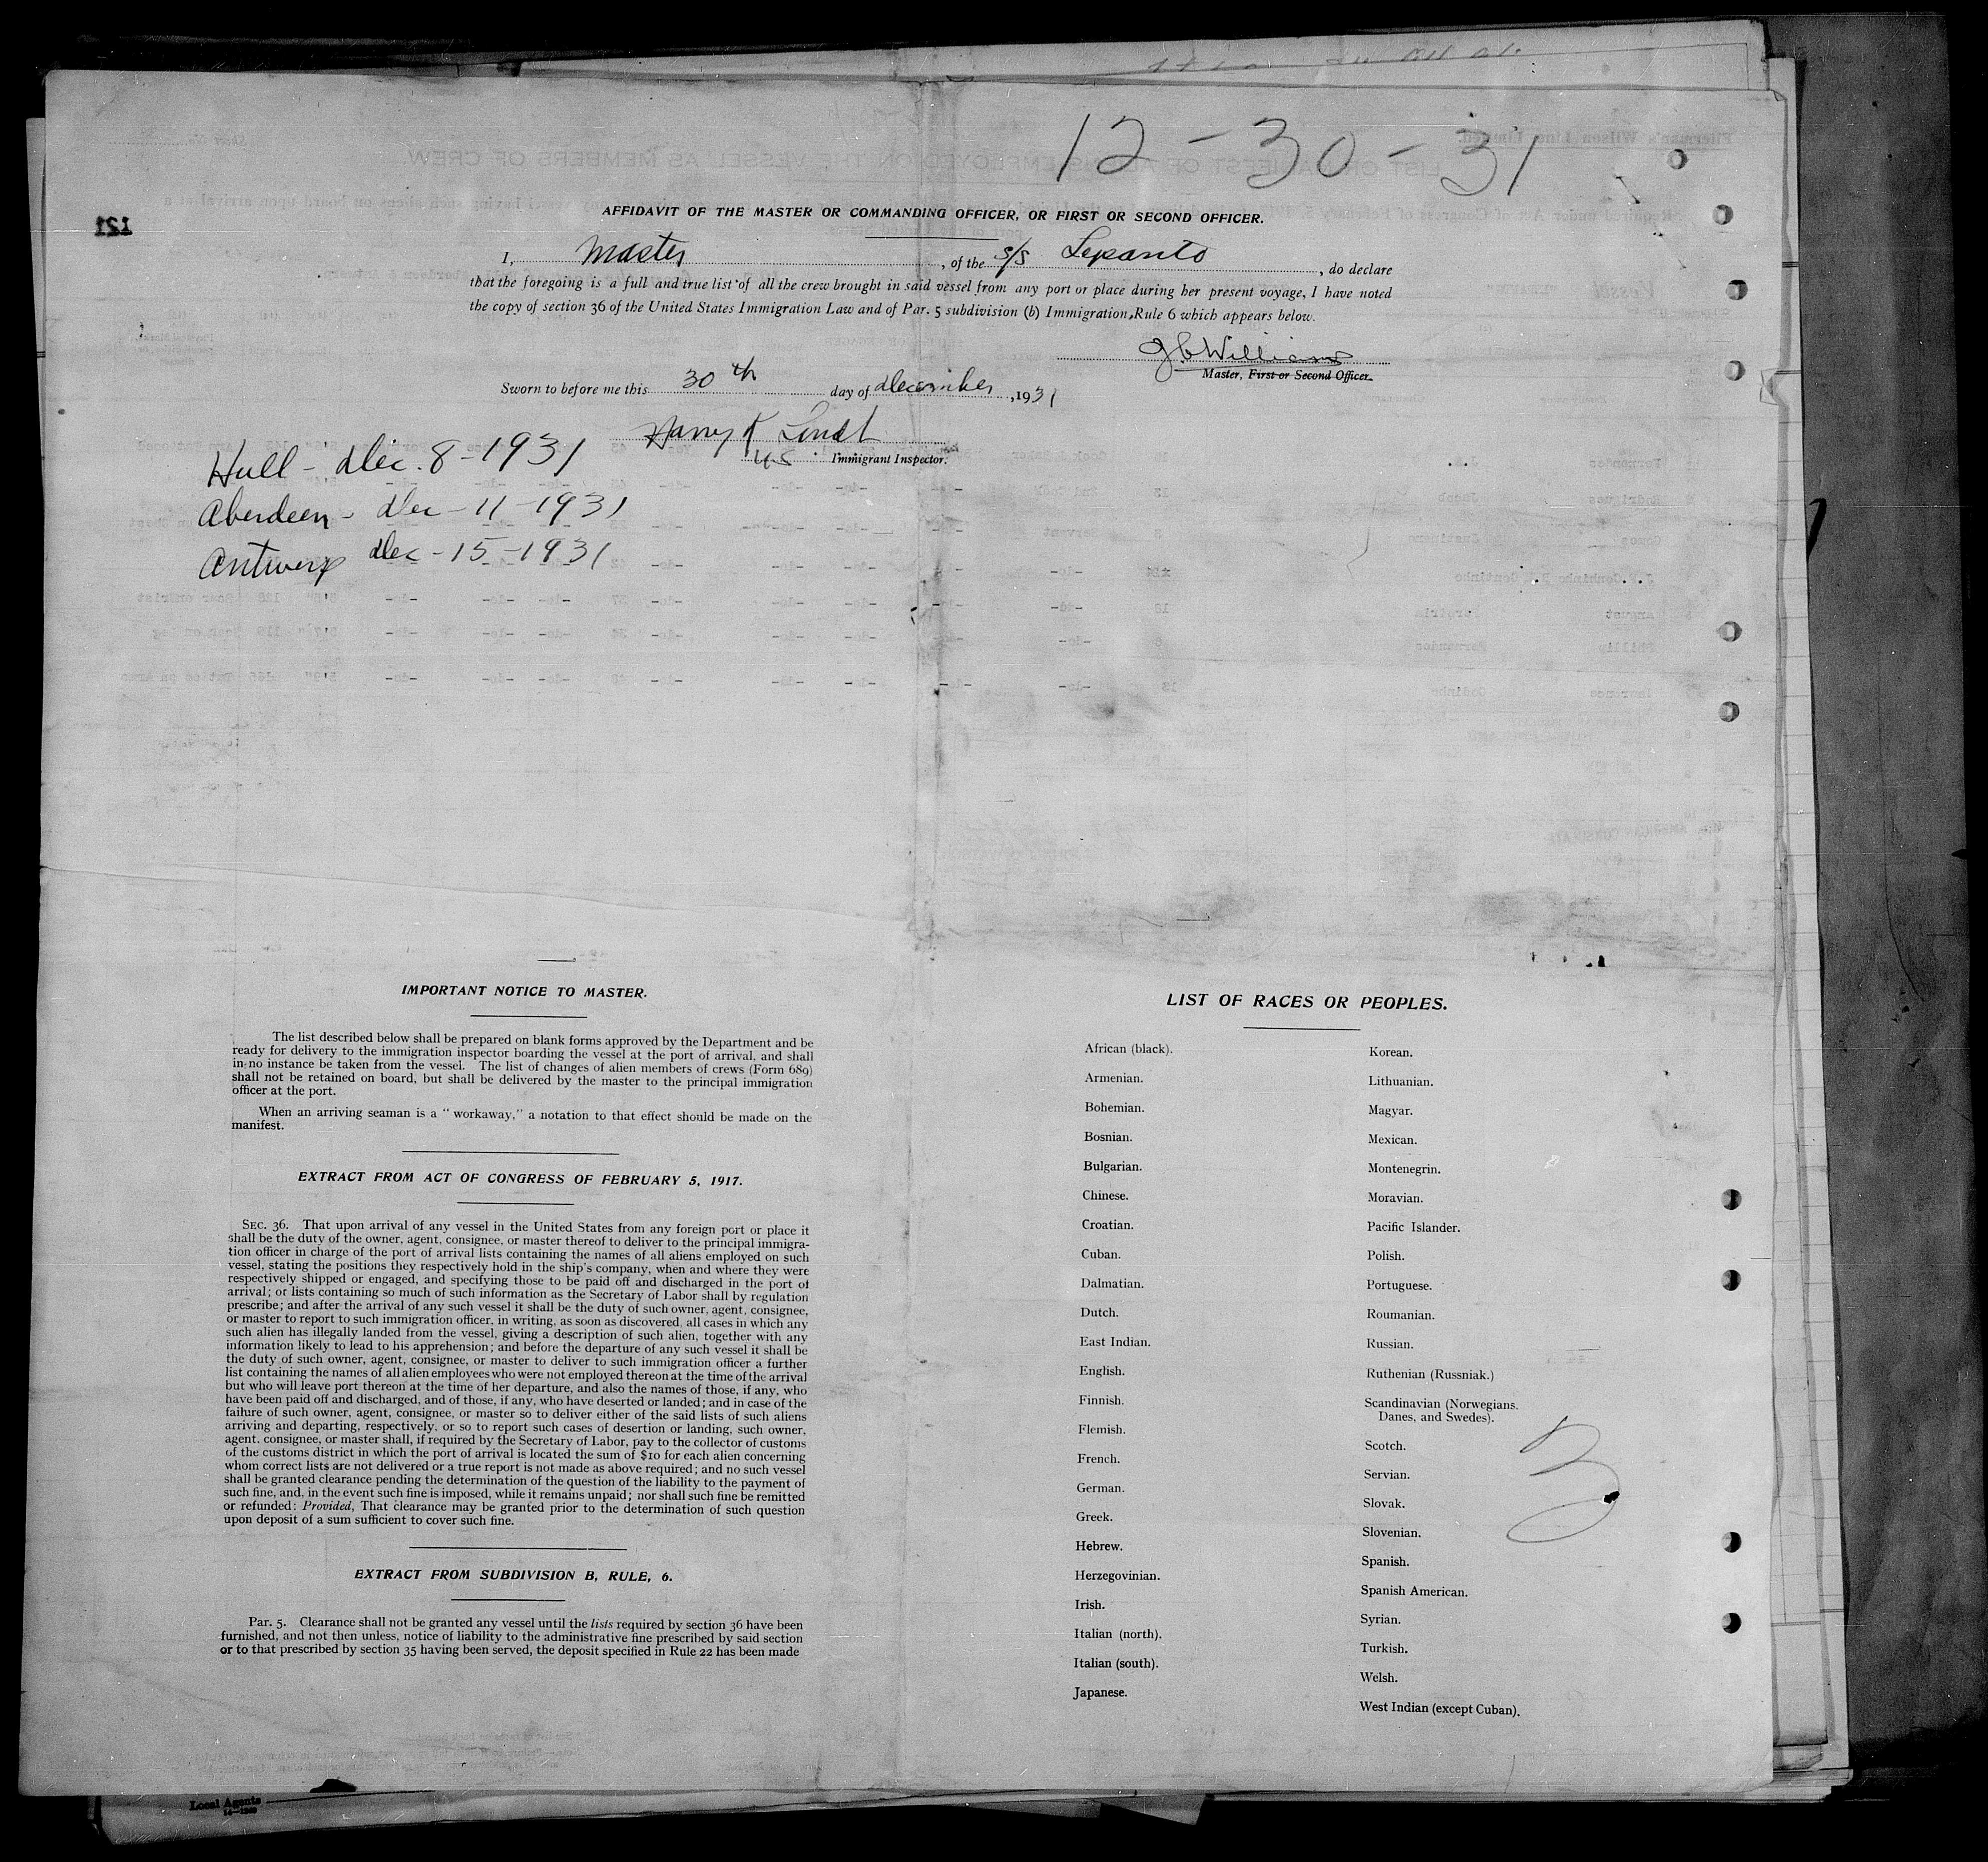 12-30-31
AFFIDAVIT OF THE MASTER OR COMMANDING OFFICER, OR FIRST OR SECOND OFFICER.
121
I, Master, of the s/s Lepanto, do declare
that the foregoing is a full and true list of all the crew brought in said vessel from any port or place during her present voyage, I have noted
the copy of section 36 of the United States Immigration Law and of Par. 5 subdivision (b) Immigration Rule 6 which appears below.
J C Williams
Master, First or Second Officer.
Sworn to before me this 30th day of December, 1931
Harry K Lindt
US Immigrant Inspector.
Hull - Dec. 8-1931
Aberdeen - Dec - 11-1931
Antwerp Dec - 15-1931
IMPORTANT NOTICE TO MASTER.
The list described below shall be prepared on blank forms approved by the Department and be
ready for delivery to the immigration inspector boarding the vessel at the port of arrival, and shall
in no instance be taken from the vessel. The list of changes of alien members of crews (Form 689)
shall not be retained on board, but shall be delivered by the master to the principal immigration
officer at the port.
When an arriving seaman is a "workaway," a notation to that effect should be made on the
manifest.
EXTRACT FROM ACT OF CONGRESS OF FEBRUARY 5, 1917.
SEC. 36. That upon arrival of any vessel in the United States from any foreign port or place it
shall be the duty of the owner, agent, consignee, or master thereof to deliver to the principal immigra-
tion officer in charge of the port of arrival lists containing the names of all aliens employed on such
vessel, stating the positions they respectively hold in the ship's company, when and where they were
respectively shipped or engaged, and specifying those to be paid off and discharged in the port of
arrival; or lists containing so much of such information as the Secretary of Labor shall by regulation
prescribe; and after the arrival of any such vessel it shall be the duty of such owner, agent, consignee,
or master to report to such immigration officer, in writing, as soon as discovered, all cases in which any
such alien has illegally landed from the vessel, giving a description of such alien, together with any
information likely to lead to his apprehension; and before the departure of any such vessel it shall be
the duty of such owner, agent, consignee, or master to deliver to such immigration officer a further
list containing the names of all alien employees who were not employed thereon at the time of the arrival
but who will leave port thereon at the time of her departure, and also the names of those, if any, who
have been paid off and discharged, and of those, if any, who have deserted or landed; and in case of the
failure of such owner, agent, consignee, or master so to deliver either of the said lists of such aliens
arriving and departing, respectively, or so to report such cases of desertion or landing, such owner,
agent, consignee, or master shall, if required by the Secretary of Labor, pay to the collector of customs
of the customs district in which the port of arrival is located the sum of $10 for each alien concerning
whom correct lists are not delivered or a true report is not made as above required; and no such vessel
shall be granted clearance pending the determination of the question of the liability to the payment of
such fine, and, in the event such fine is imposed, while it remains unpaid; nor shall such fine be remitted
or refunded: Provided, That clearance may be granted prior to the determination of such question
upon deposit of a sum sufficient to cover such fine.
EXTRACT FROM SUBDIVISION B, RULE, 6.
Par. 5. Clearance shall not be granted any vessel until the lists required by section 36 have been
furnished, and not then unless, notice of liability to the administrative fine prescribed by said section
or to that prescribed by section 35 having been served, the deposit specified in Rule 22 has been made
LIST OF RACES OR PEOPLES.
African (black).
Armenian.
Bohemian.
Bosnian.
Bulgarian.
Chinese.
Croatian.
Cuban.
Dalmatian.
Dutch.
East Indian.
English.
Finnish.
Flemish.
French.
German.
Greek.
Hebrew.
Herzegovinian.
Irish.
Italian (north).
Italian (south).
Japanese.
Korean.
Lithuanian.
Magyar.
Mexican.
Montenegrin.
Moravian.
Pacific Islander.
Polish.
Portuguese.
Roumanian.
Russian.
Ruthenian (Russniak.)
Scandinavian (Norwegians.
Danes, and Swedes).
Scotch.
Servian.
Slovak.
Slovenian.
Spanish.
Spanish American.
Syrian.
Turkish.
Welsh.
West Indian (except Cuban).
3
Local Agents